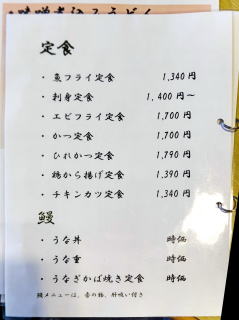 味噌煮込みうどん
定食
・魚フライ定食 1,340円
・刺身定食 1,400円~
・エビフライ定食 1,700円
・かつ定食 1,700円
・ひれかつ定食 1,790円
・鶏から揚げ定食 1,390円
・チキンカツ定食 1,340円
鰻
・うな丼 時価
・うな重 時価
・うなぎかば焼き定食 時価
鰻メニューは、香の物、肝吸い付き